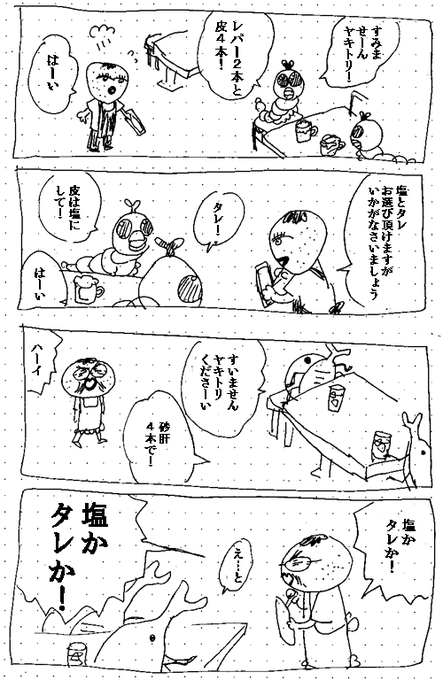 すみま
せーん
ヤキトリー！
レバー２本と
皮４本！
はーい
塩とタレ
お選び頂けますが
いかがなさいましょう
タレ！
皮は塩に
して！
はーい
すいません
ヤキトリ
くださーい
砂肝
４本で！
ハーイ
塩か
タレか！
え…と
塩か
タレか！